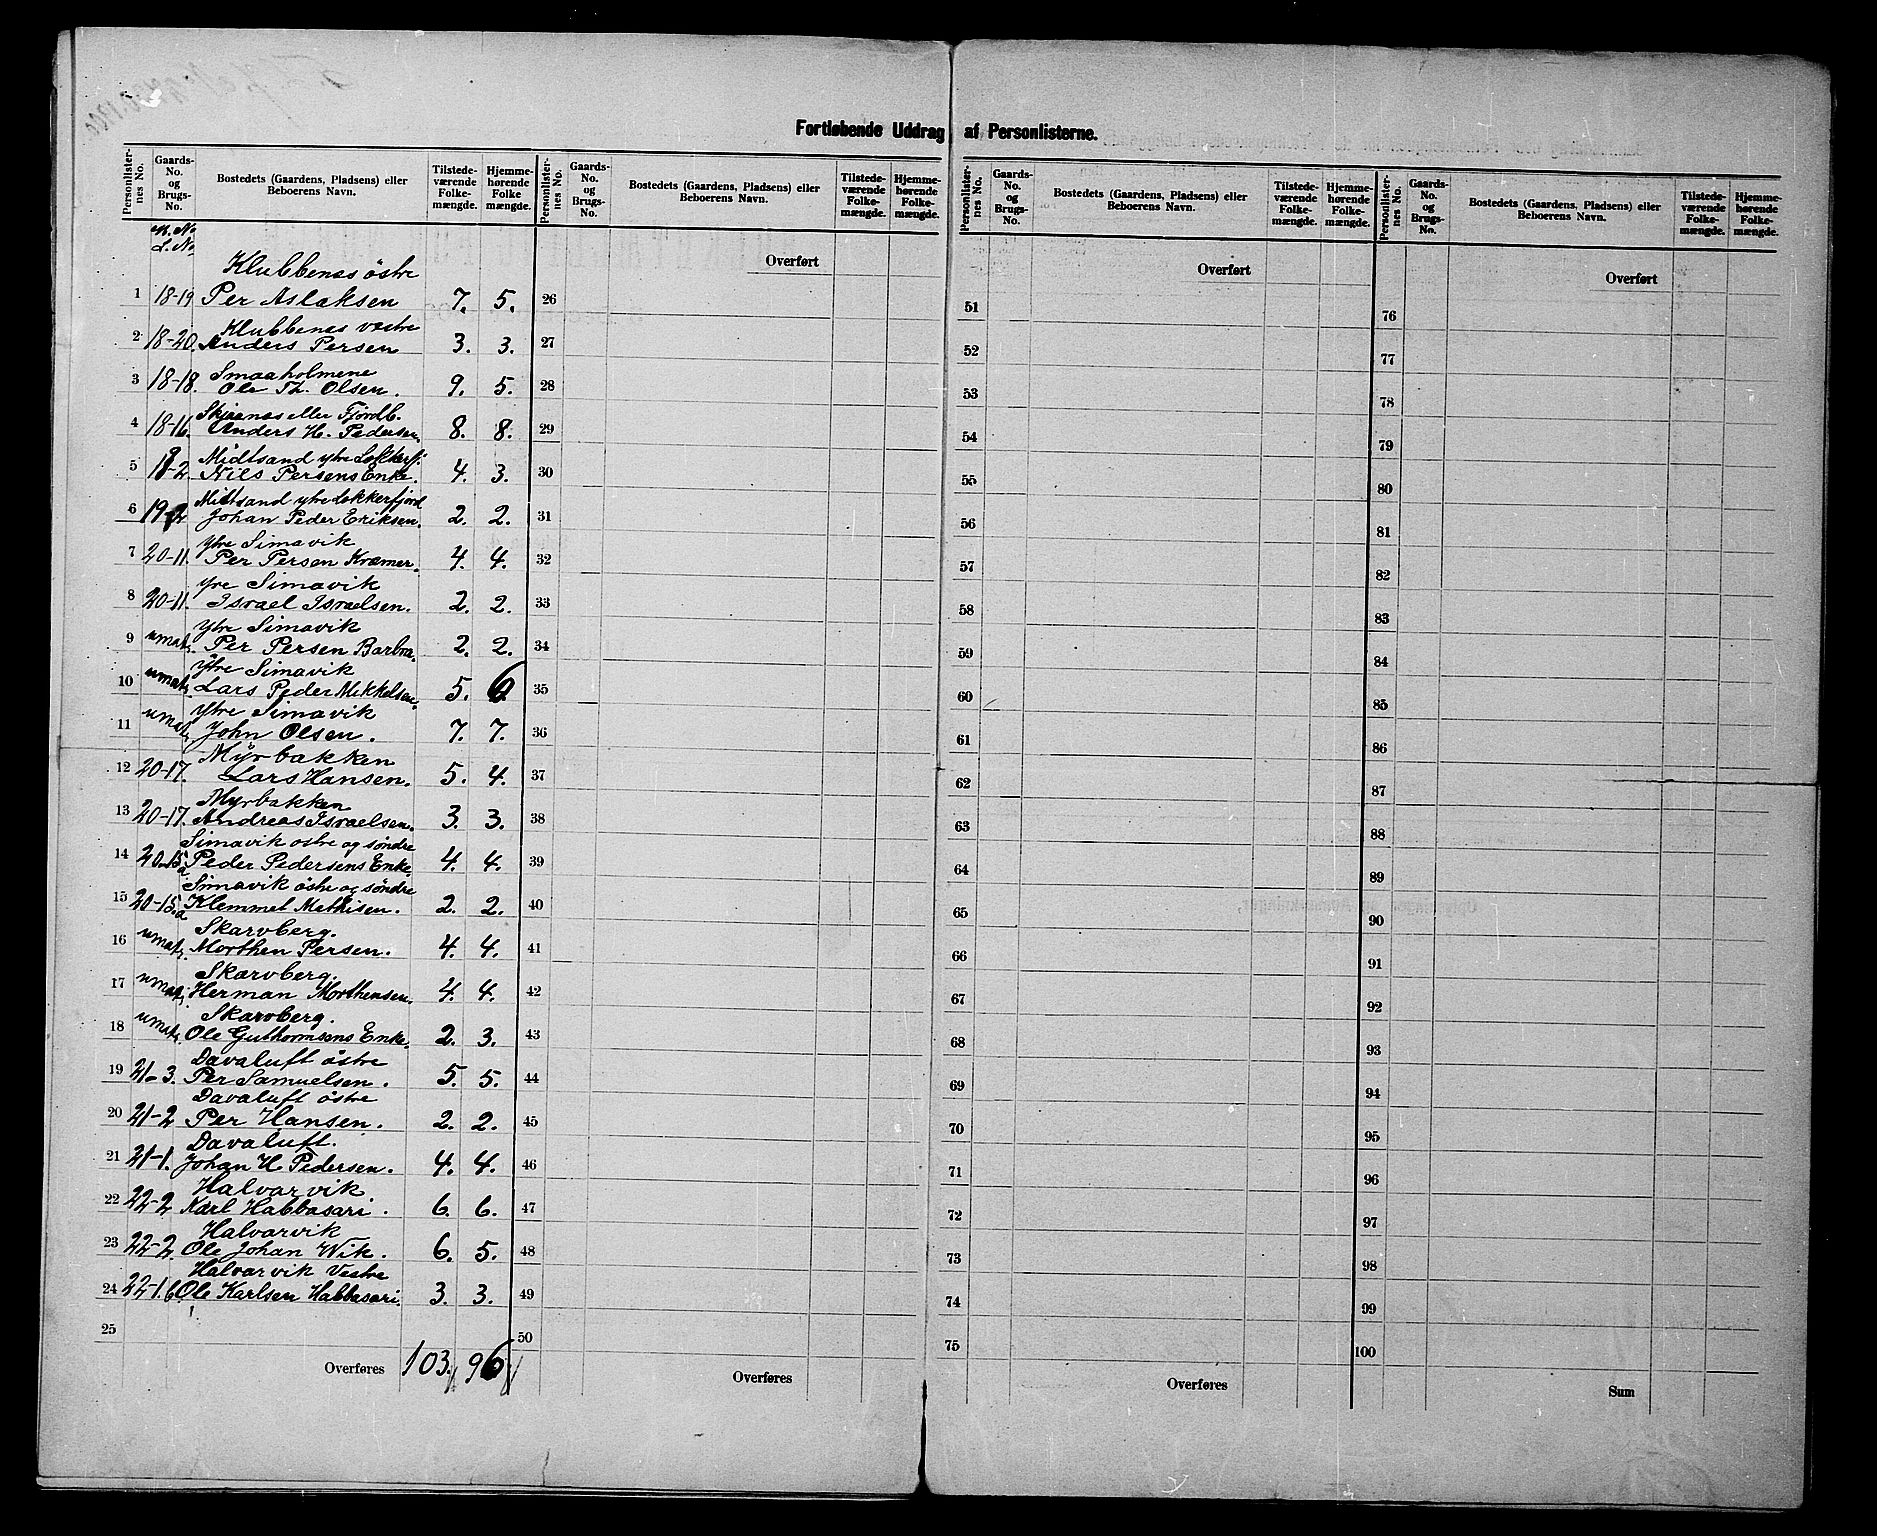 Fortløbende Uddrag af Personlisterne.
Personlister-nes No. Gaards-No. og Brugs-No. Bostedets (Gaardens, Pladsens) eller Beboerens Navn. Tilstede-værende Folke-mængde. Hjemme-hørende Folke mængde. Personlister-nes No. Gaards-No. og Brugs-No. Bostedets (Gaardens, Pladsens) eller Beboerens Navn. Tilstede-værende Folke-mængde. Hjemme-hørende Folke-mængde. Personlister-nes No. Gaards-No. og Brugs-No. Bostedets (Gaardens, Pladsens) eller Beboerens Navn. Tilstede-værende Folke-mængde. Hjemme-hørende Folke-mængde. Personlister-nes No. Gaards-No. og Brugs-No. Bostedets (Gaardens, Pladsens) eller Beboerens Navn. Tilstede-værende Folke-mængde. Hjemme-hørende Folke-mængde.
M. No
L. No
Overført Overført Overført
Klubbenæs östre
1 18-19 Per Aslaksen 7. 5. 26 51 76
Klubbenæs vestre
2 18-20. Anders Persen 3. 3. 27 52 77
Smaaholmene
3 18-18. Ole Th. Olsen. 9. 5. 28 53 78
Skjaanes eller Fjordb.
4 18-16. Anders H. Pedersen. 8. 8. 29 54 79
Midtsand ytre Lekkerfj.
5 19-2 Nils Persens Enke. 4. 3. 30 55 80
Midtsand ytre Lekkerfjord
6 19-2 Johan Peder Eriksen. 2. 2. 31 56 81
Ytre Simavik
7 20-11. Per Persen Kræmer. 4. 4. 32 57 82
Yre Simavik
8 20-11. Israel Israelsen. 2. 2. 33 58 83
Ytre Simavik
9 umat. Per Persen Barbra. 2. 2. 34 59 84
Ytre Simavik
10 umat. Lars Peder Mikkelsen. 5. 6 35 60 85
Ytre Simavik
11 umat. John Olsen. 7. 7. 36 61 86
Myrbakken
12 20-17. Lars Hansen. 5. 4. 37 62 87
Myrbakken
13 20-17. Andreas Israelsen. 3. 3. 38 63 88
Simavik ostre og söndre
14 20-15 a Peder Pedersens Enke. 4. 4. 39 64 89
Simavik östre og söndre
15 20-15. a Klemmet Mathisen. 2. 2. 40 65 90
Skarvberg.
16 umat. Morthen Persen. 4. 4. 41 66 91
Skarvberg.
17 umat. Herman Morthensen. 4. 4. 42 67 92
Skarvberg.
18 umat. Ole Guthormsens Enke. 2. 3. 43 68 93
Davaluft östre
19 21-3. Per Samuelsen. 5. 5. 44 69 94
Davaluft östre
20 21-2 Per Hansen. 2. 2. 45 70 95
Davaluft.
21 21-1. Johan H. Pedersen. 4. 4. 46 71 96
Halvarvik.
22 22-2 Karl Habbasari. 6. 6. 47 72 97
Halvarvik
23 22-2. Ole Johan Wik. 6. 5. 48 73 98
Halvarvik Vestre
24 22-1.6 Ole Karlsen Habbasari. 3. 3. 49 74 99
25 50 75 100
Overføres 103. 96 Overføres Overføres Sum